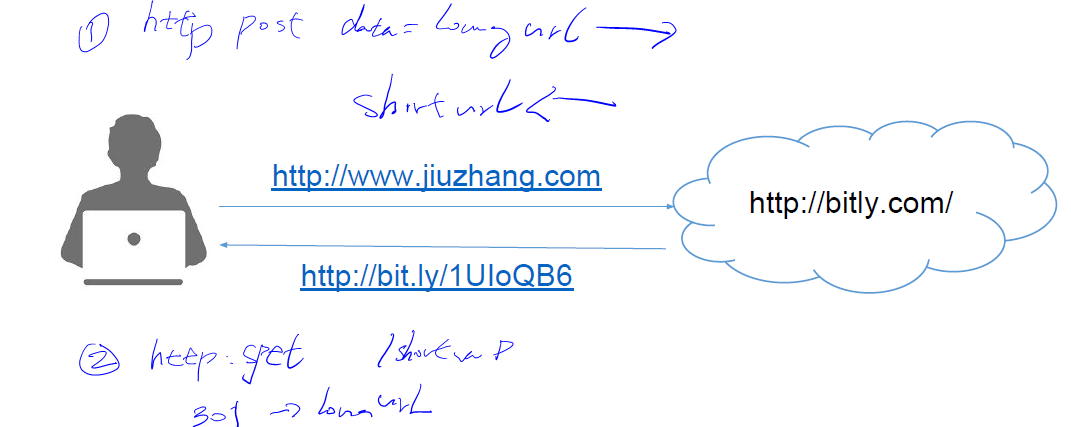 ① http post data= long url →
short url ←
http://www.jiuzhang.com
http://bitly.com/
http://bit.ly/1UIoQB6
② http get /short url
301 → long url